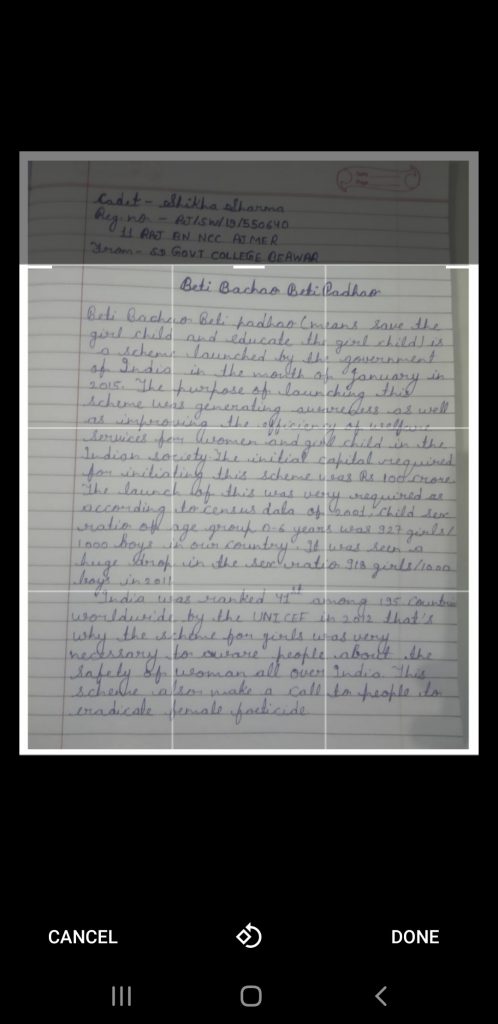 Cadet - Shikha Sharma
Reg. no. - RJ/SW/19/550640
11 RAJ BN NCC AJMER
From - SD GOVT COLLEGE BEAWAR
Beti Bachao Beti Padhao
Beti Bachao Beti padhao (means save the
girl child and educate the girl child) is
a scheme launched by the government
of India in the month of January in
2015. The purpose of launching this
scheme was generating awareness as well
as improving the efficiency of welfare
services for women and girl child in the
Indian society. The initial capital required
for initiating this scheme was Rs 100 crore.
The launch of this was very required as
according to census data of 2001, child sex
ratio of age group 0-6 years was 927 girls/
1000 boys in our country. It was seen a
huge drop in the sex ratio 918 girls/1000
boys in 2011
India was ranked 41st among 195 countries
worldwide by the UNICEF in 2012 that's
why the scheme for girls was very
necessary to aware people about the
safety of woman all over India. This
scheme also make a call to people to
eradicate female foeticide
CANCEL
DONE